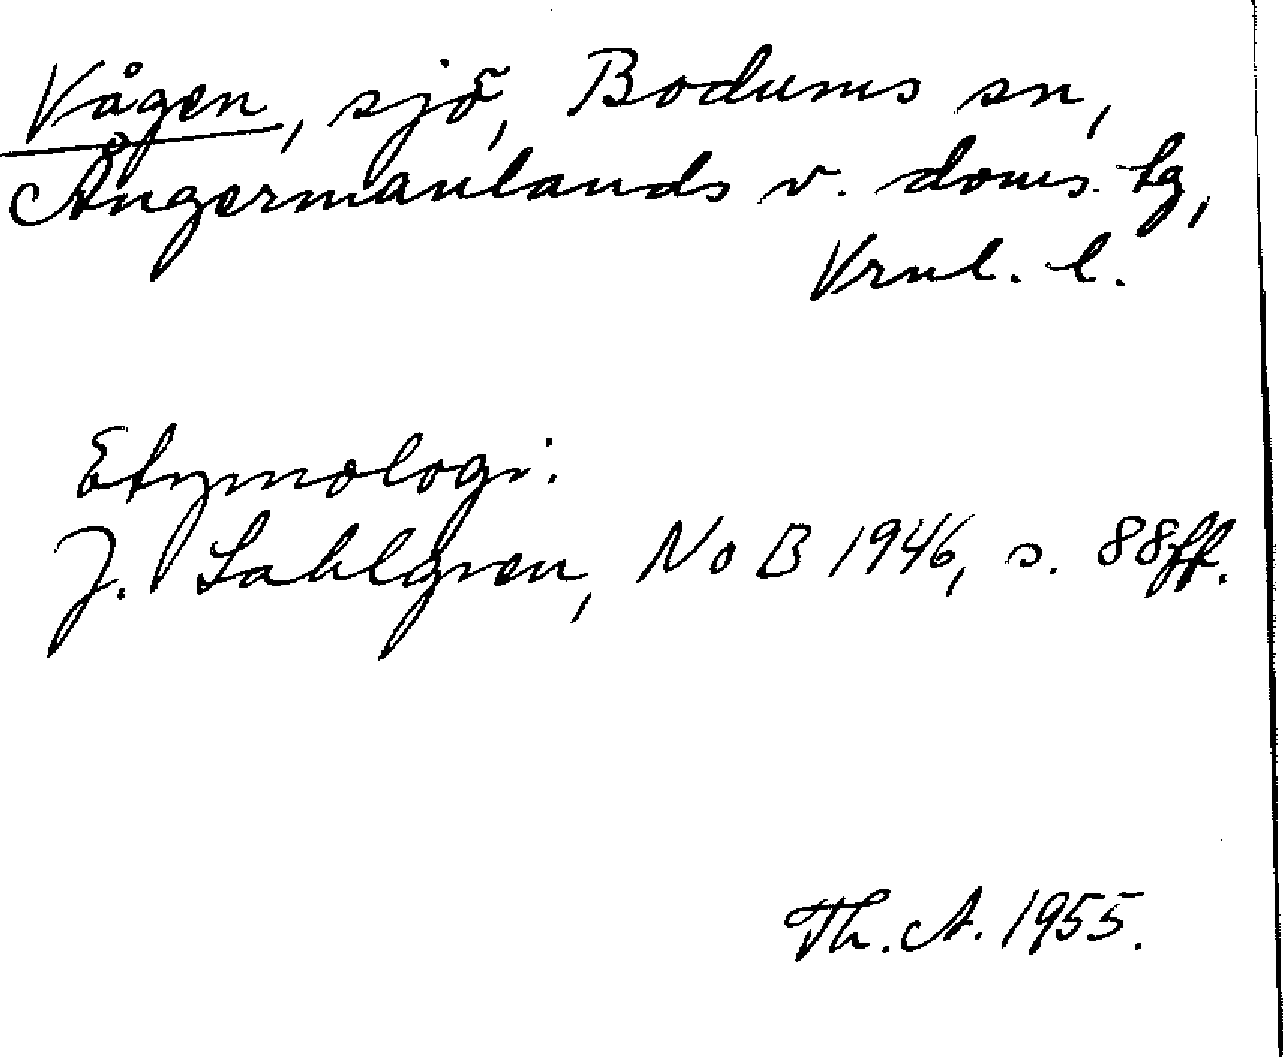 Vågen, sjö, Bodums sn,
Ångermanlands v. doms. tg,
Vrnl. l.
Etymologi:
J. Sahlgren, NoB 1946, s. 88ff.
Th. A. 1955.